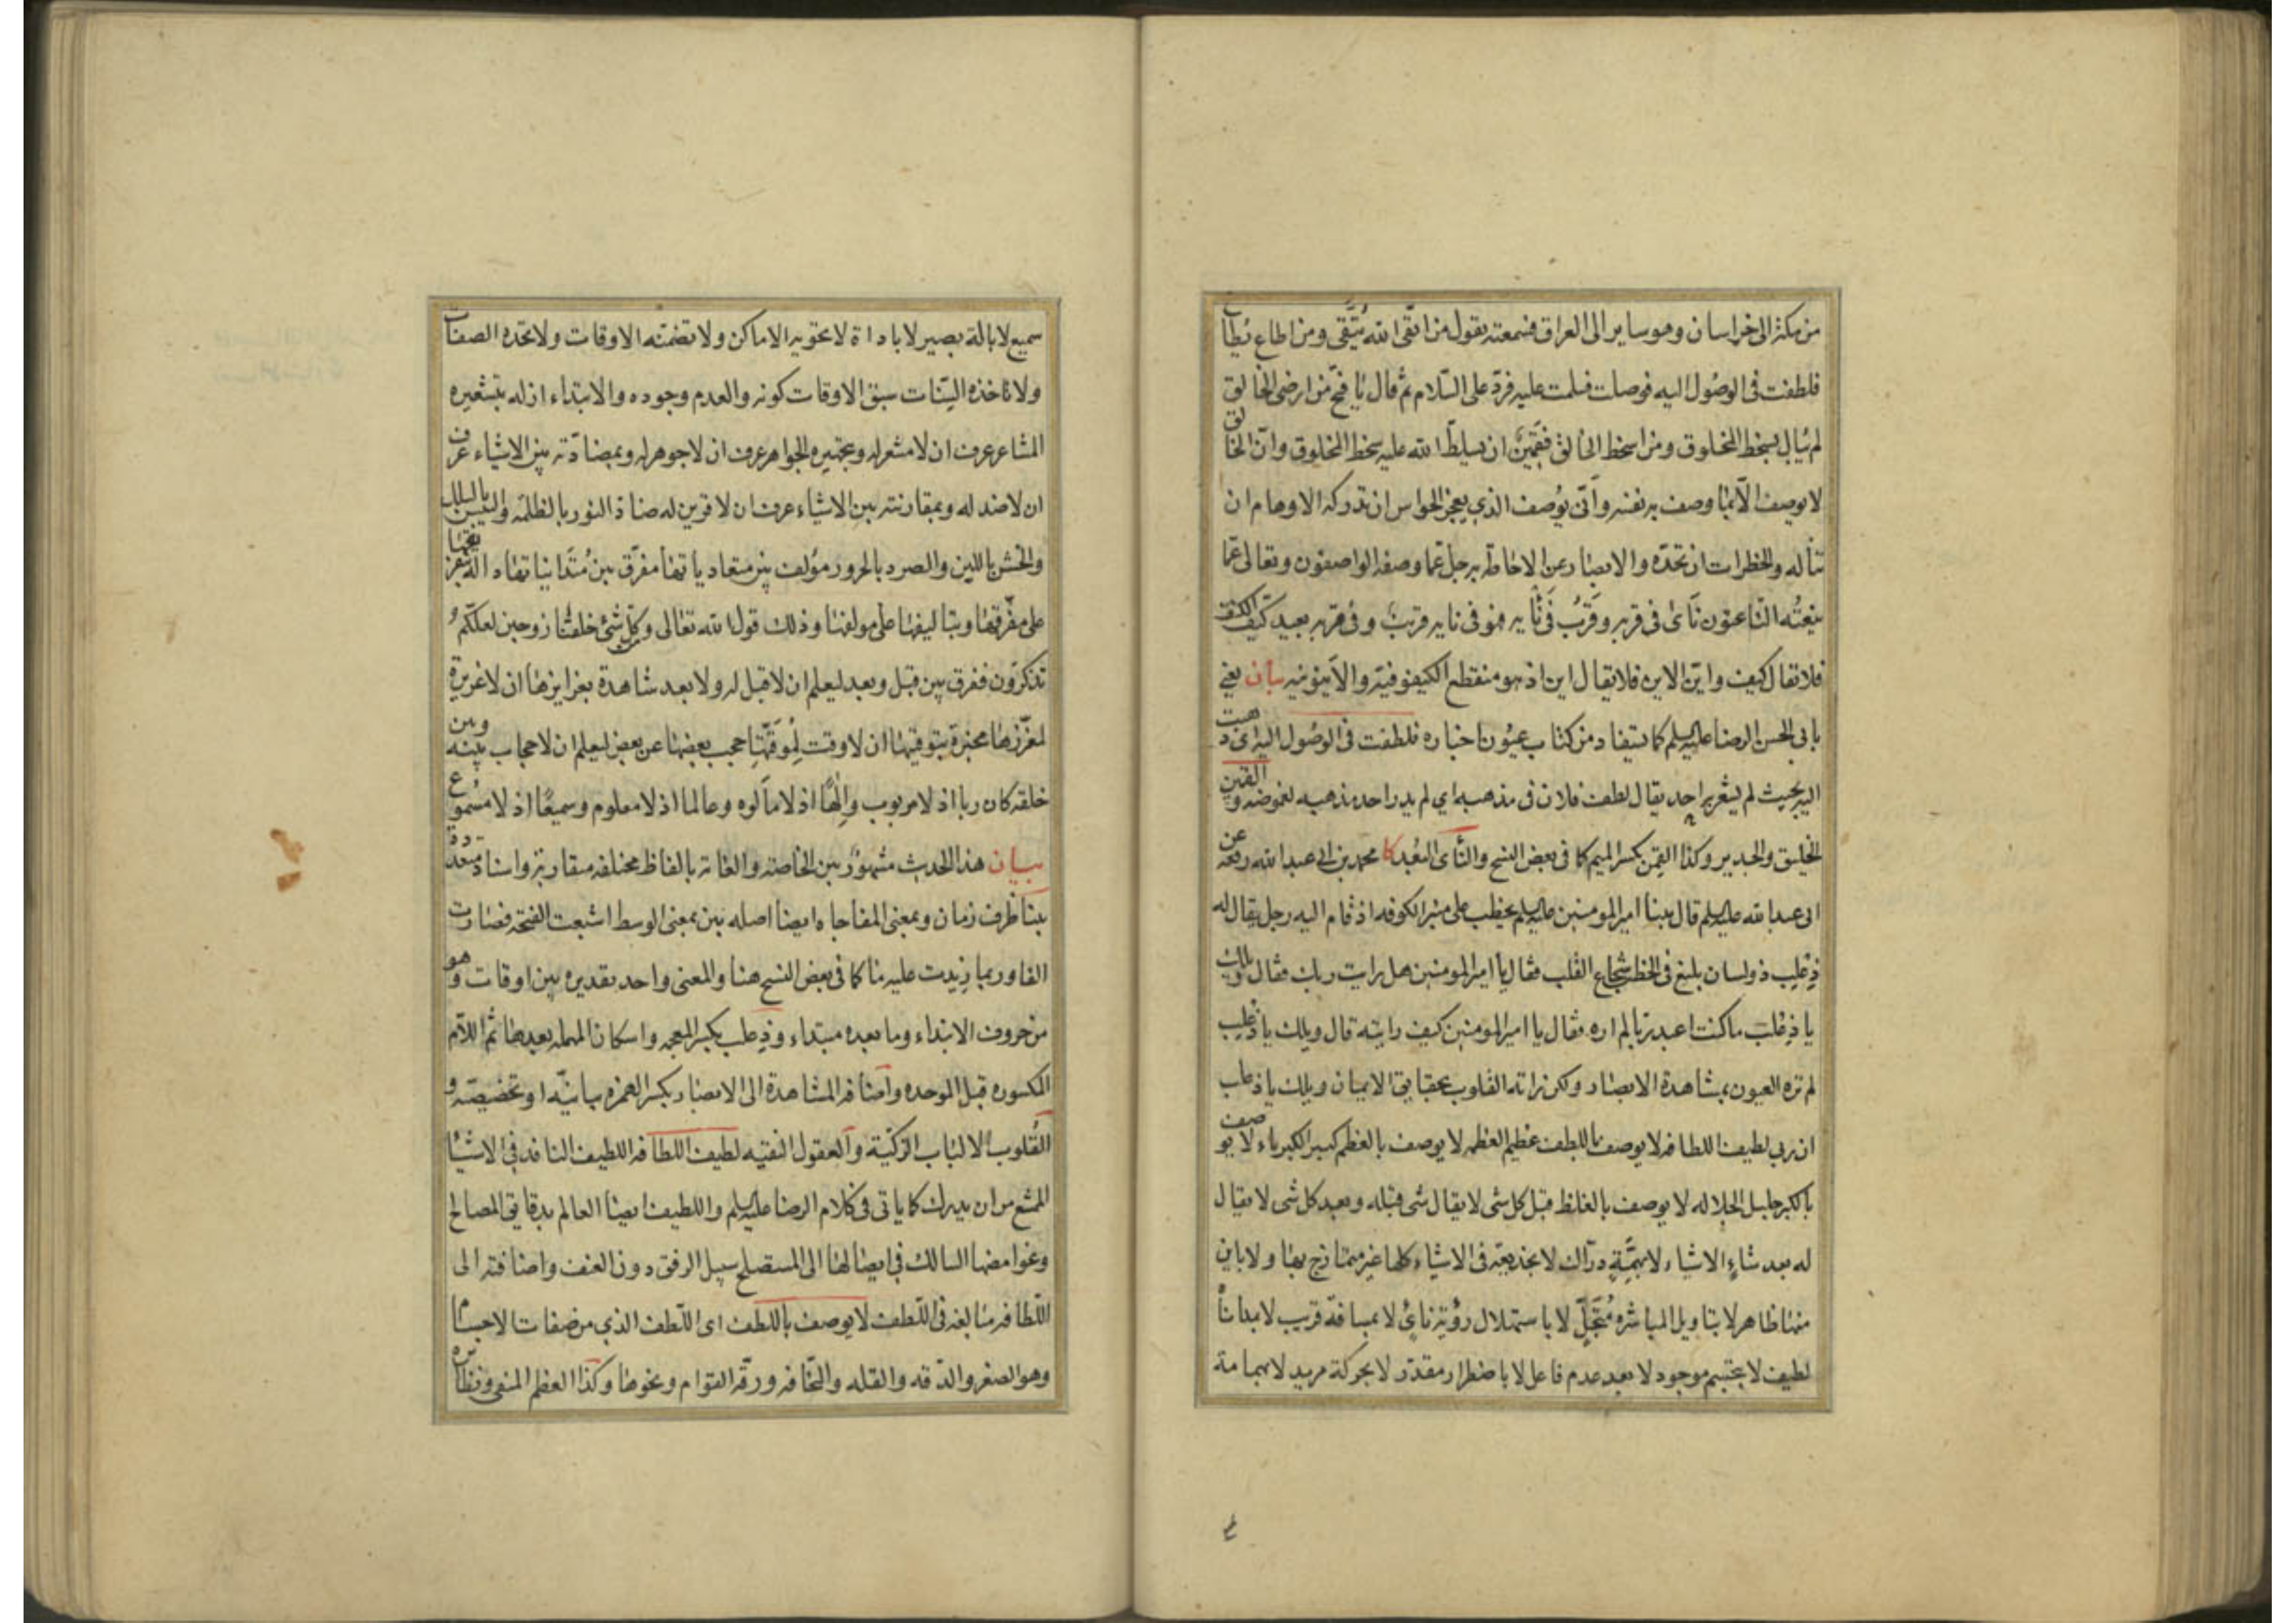 من مكة الى خراسان وهو ساير الى العراق فسمعته يقول من اتقى الله يُتَّقى ومن اطاع يُطاع
فلطفت فى الوصُول اليه فوصلت فسلمت عليه فردّ على السّلام ثم قال يا فتح من ارضى الخالق
لم يُبال بسخط المخلوق ومن اسخط الخالق فَقَمِنٌ ان يسلطّ الله عليه سخط المخلوق وانّ الخالق
لا يوصف الّا بما وصف به نفسه وأنّى يُوصف الذي يعجز الحواس ان تدركه الاوهام ان
تناله والخطرات ان تحدّه والابصار عن الاحاطة به جلّ عمّا وصفه الواصفون وتعالى عمّا
ينعتُه النّاعتون نَأى فى قربه وقَرُبَ فى نَأيه فهو فى نايه قريب وفى قربه بعيد كيّف الكيف
فلا يقال كيف واين الاين فلا يقال اين اذ هو منقطع الكيفوفيّه والاَينونيّه بيان يعنى
بابى الحسن الرضا عليه السلم كما يستفاد من كتاب عيُون اخباره فلطفت فى الوصُول اليه اى ذهبت
اليه بحيث لم يشعر به احد يقال لطف فلان فى مذهبه اي لم يدر احد مذهبه لغموضه والقمين
الخليق والجدير وكذا القَمِن بكسر الميم كما فى بعض النسخ والنّأى البُعد كا محمد بن ابى عبد الله رفعه عن
ابى عبد الله عليه السلم قال بينا امير المومنين عليه السلم يخطب على منبر الكوفه اذ قام اليه رجل يقال له
ذِعْلِب ذو لسان بليغ فى الخطب شجاع القلب فقال يا امير المومنين هل رايت ربك فقال ويلك
يا ذِعْلب ما كنت اعبد ربا لم اره فقال يا امير المومنين كيف رايته قال ويلك يا ذعلب
لم تره العيون بمشاهدة الابصار ولكن راته القلوب بحقايق الايمان ويلك يا ذعلب
ان ربي لطيف اللطافه لا يوصف باللطف عظيم العظمه لا يوصف بالعظم كبير الكبرياء لا يوصف
بالكبر جليل الجلاله لا يوصف بالغلظ قبل كل شى لا يقال شى قبله وبعد كل شى لا يقال
له بعد شاءٍ الاشياء لا بهمَّةٍ درّاك لا بخديعة فى الاشياء كلها غير متمازج بها ولا باين
منها ظاهر لا بتاويل المباشره مُتَجَلٍّ لا باستهلال رؤية نايءٍ لا بمسافة قريب لا بمداناة
لطيف لا بتجسم موجود لا بعد عدم فاعل لا باضطرار مقدّر لا بحركة مريد لا بهمامة
سميع لا بالة بصير لا باداة لا تحويه الاماكن ولا تضمنه الاوقات ولا تحده الصفات
ولا تاخذه السّنات سبق الاوقات كونه والعدم وجوده والابتداء ازله بتشعيره
المشاعر عرف ان لا مشعر له وبتجهيره الجواهر عرف ان لا جوهر له وبمضادّته بين الاشياء عرف
ان لا ضد له وبمقارنته بين الاشياء عرف ان لا قرين له ضادّ النور بالظلمه واليبس بالبلل
والخشن باللين والصرد بالحرور مؤلف بين متعادياتها مفرّق بين مُتَدانياتها دالة بتفريقها
على مفرّقها وبتاليفها على مولفها وذلك قول الله تعالى وكل شئ خلقنا زوجين لعلكم
تذكرون ففرق بين قبل وبعد ليعلم ان لا قبل له ولا بعد شاهدة بغرايزها ان لا غريزة
لمغرّزها مخبرة بتوقيتها ان لا وقت لِمُوَقّتِها حجب بعضها عن بعض ليعلم ان لا حجاب بينه وبين
خلقه كان ربا اذ لا مربوب وإلهًا اذ لا مألوه وعالما اذ لا معلوم وسميعًا اذ لا مسموع
بيان هذا الحديث مشهورٌ بين الخاصه والعامه بالفاظ مختلفه متقاربة واسناد متعددة
بينا ظرف زمان وبمعنى المفاجاه ايضا اصله بين بمعنى الوسط اشبعت الفتحه فصارت
الفا وربما زيدت عليه ما كما فى بعض النسخ هنا والمعنى واحد تقديره بين اوقات وهو
من حروف الابتداء وما بعده مبتداء وذِعلب بكسر المعجمه واسكان المهمله بعدها ثم اللّام
المكسوره قبل الموحده واضافه المشاهدة الى الابصار بكسر الهمزه بيانيّه او تخصيصيّه و
القُلوب الالباب الزكيّة والعقول النقيّه لطيف اللطافه اللطيف النافد فى الاشياء
الممتنع من ان يدرك كما ياتى فى كلام الرضا عليه السلم واللطيف ايضا العالم بدقايق المصالح
وغوامضها السالك فى ايصالها الى المستصلح سبيل الرفق دون العنف واضافته الى
اللّطافه مبالغه فى اللّطف لا يوصف باللّطف اى اللّطف الذي من صفات الاجسام
وهو الصغر والدّقه والقله والنّحافه ورقّه القوام ونحوها وكذا العظم المنفى ونظائره